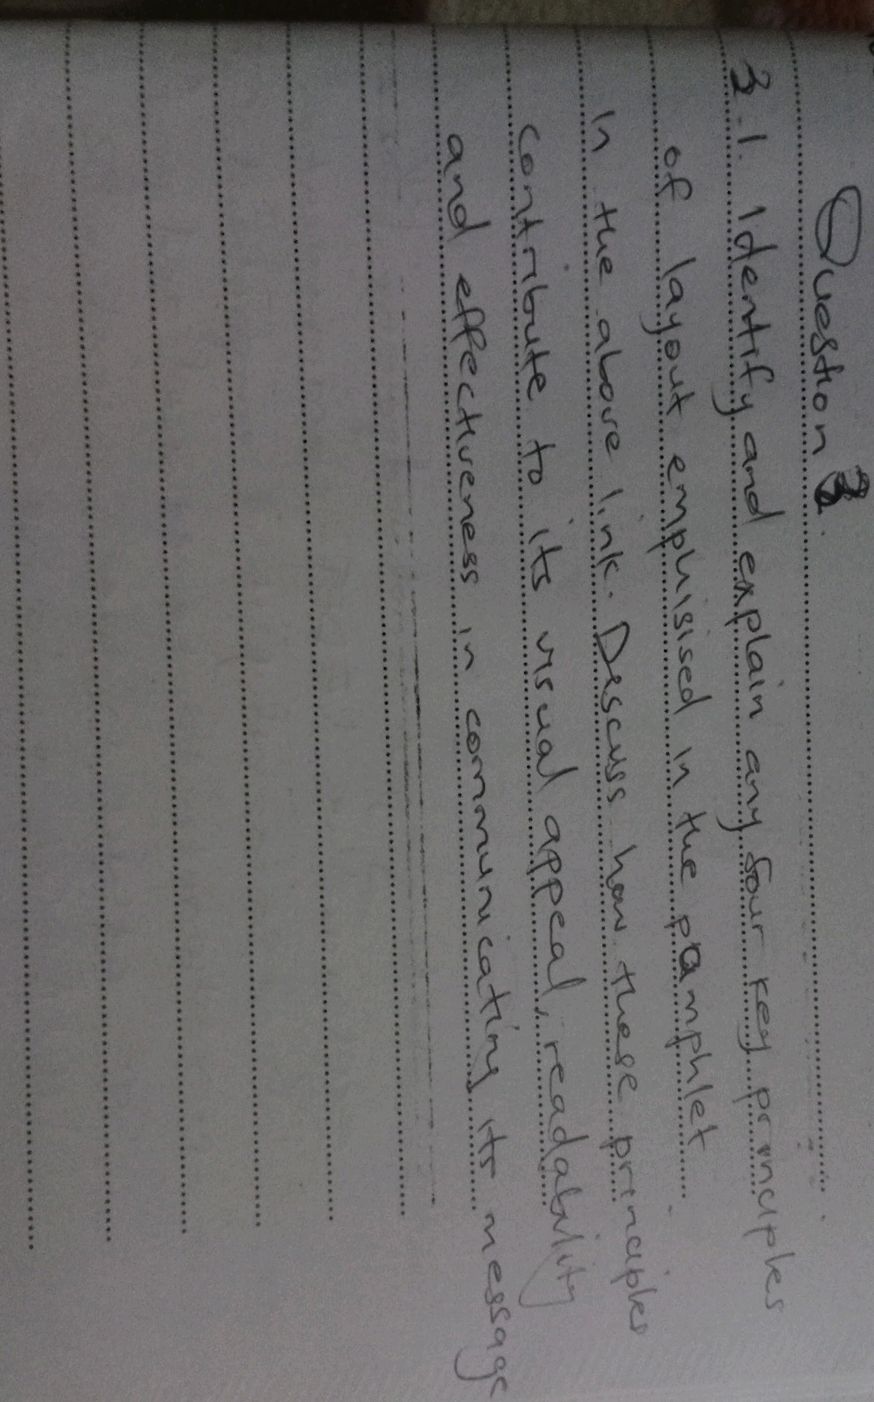 Question 3.
3.1. Identify and explain any four key principles
of layout emphisised in the pamphlet
in the above link. Discuss how these principles
contribute to its visual appeal, readability
and effectiveness in communicating its message